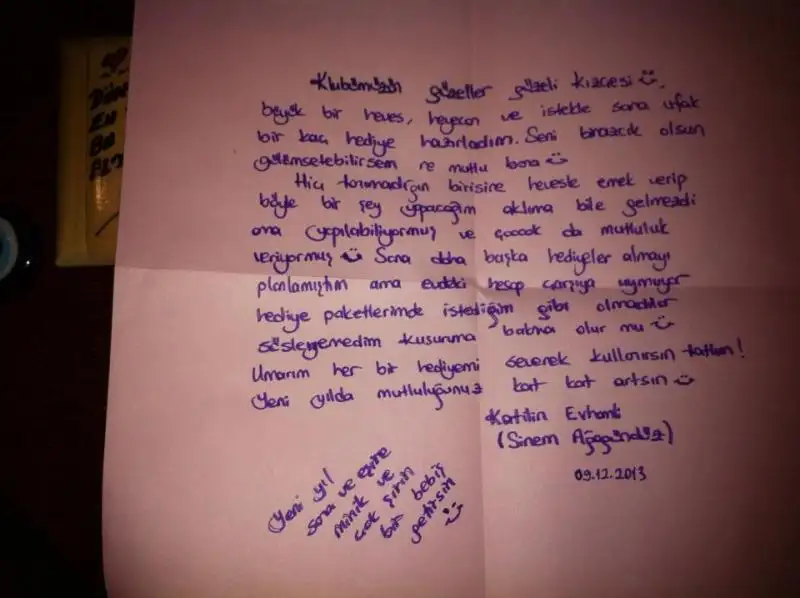 Klubümüzün güzeller güzeli kızçesi ü,
büyük bir heves, heyecan ve istekle sana ufak
bir kaç hediye hazırladım. Seni birazcık olsun
gülümsetebilirsem ne mutlu bana ü
Hiç tanımadığın birisine hevesle emek verip
böyle bir şey yapacağım aklıma bile gelmezdi
ama yapılabiliyormuş ve çoook da mutluluk
veriyormuş ü Sana daha başka hediyeler almayı
planlamıştım ama evdeki hesap çarşıya uymuyor
hediye paketlerimde istediğim gibi olmadılar
süsleyemedim kusuruma bakma olur mu ü
Umarım her bir hediyemi severek kullanırsın tatlım!
Yeni yılda mutluluğunuz kat kat artsın ü
Katilin Evhanlı
(Sinem Ağagündüz)
09.12.2013
Yeni yıl
sana ve eşine
minik ve
çok şirin
bir bebiş
getirsin
ü
En
Bu